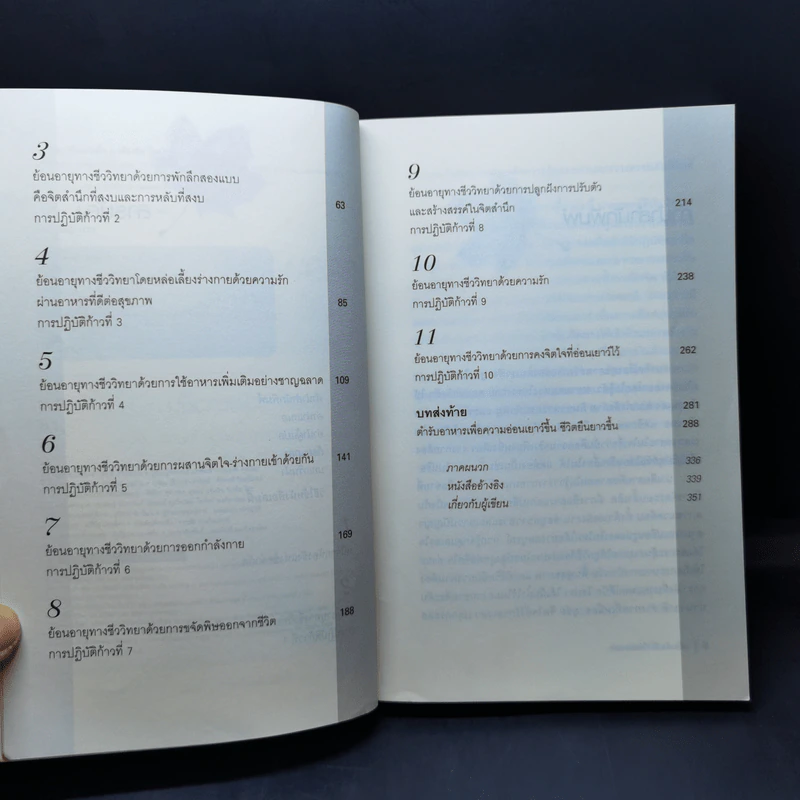 3
ย้อนอายุทางชีววิทยาด้วยการพักลึกสองแบบ
คือจิตสำนึกที่สงบและการหลับที่สงบ 63
การปฏิบัติก้าวที่ 2
4
ย้อนอายุทางชีววิทยาโดยหล่อเลี้ยงร่างกายด้วยความรัก
ผ่านอาหารที่ดีต่อสุขภาพ 85
การปฏิบัติก้าวที่ 3
5
ย้อนอายุทางชีววิทยาด้วยการใช้อาหารเพิ่มเติมอย่างชาญฉลาด 109
การปฏิบัติก้าวที่ 4
6
ย้อนอายุทางชีววิทยาด้วยการผสานจิตใจ-ร่างกายเข้าด้วยกัน 141
การปฏิบัติก้าวที่ 5
7
ย้อนอายุทางชีววิทยาด้วยการออกกำลังกาย 169
การปฏิบัติก้าวที่ 6
8
ย้อนอายุทางชีววิทยาด้วยการขจัดพิษออกจากชีวิต 188
การปฏิบัติก้าวที่ 7
9
ย้อนอายุทางชีววิทยาด้วยการปลูกฝังการปรับตัว
และสร้างสรรค์ในจิตสำนึก 214
การปฏิบัติก้าวที่ 8
10
ย้อนอายุทางชีววิทยาด้วยความรัก 238
การปฏิบัติก้าวที่ 9
11
ย้อนอายุทางชีววิทยาด้วยการคงจิตใจที่อ่อนเยาว์ไว้ 262
การปฏิบัติก้าวที่ 10
บทส่งท้าย 281
ตำรับอาหารเพื่อความอ่อนเยาว์ขึ้น ชีวิตยืนยาวขึ้น 288
ภาคผนวก 336
หนังสืออ้างอิง 339
เกี่ยวกับผู้เขียน 351